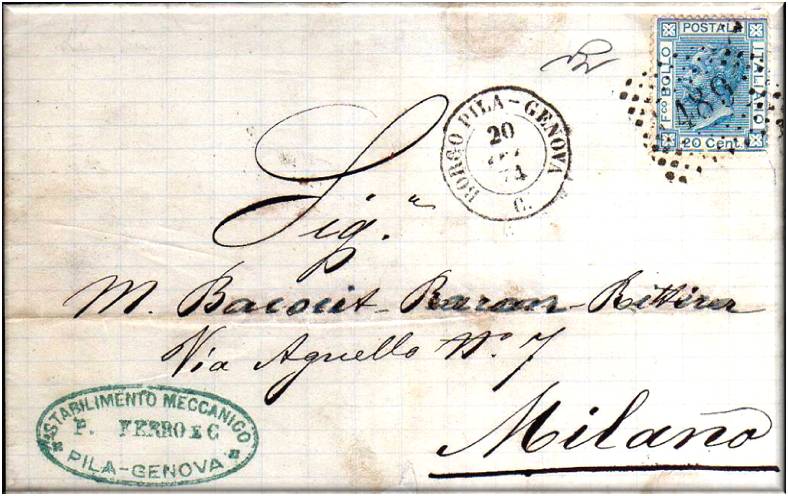 POSTALE
F.co BOLLO
ITALIANO
189
20 Cent.
BORGO PILA - GENOVA
20
74
C.
Sig.ra
M. Bacoüt - Baran -
Via Agnello No. 7
Milano
STABILIMENTO MECCANICO
P. FERRO E C
PILA-GENOVA